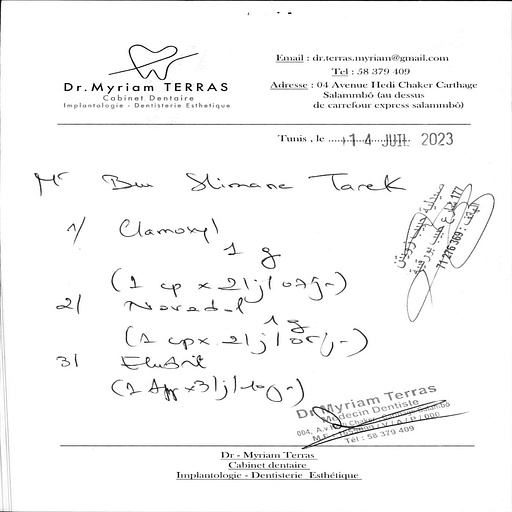 Dr.Myriam TERRAS
Cabinet Dentaire
Implantologie - Dentisterie Esthetique
Email : dr.terras.myriam@gmail.com
Tel : 58 379 409
Adresse : 04 Avenue Hedi Chaker Carthage
Salammbô (au dessus
de carrefour express salammbô)
Tunis , le 14 JUIL 2023
Mr Ben Slimane Tarek
1/ Clamoxyl
1 g
(1 cp x 2/j/07j)
2/
1 g
(1 cp x 2/j/05j)
3/ Eludril
(1 App x3/j/10j)
71 276 369
177
Dr Myriam Terras
Médecin Dentiste
Tél : 58 379 409
Dr - Myriam Terras
Cabinet dentaire
Implantologie - Dentisterie Esthétique